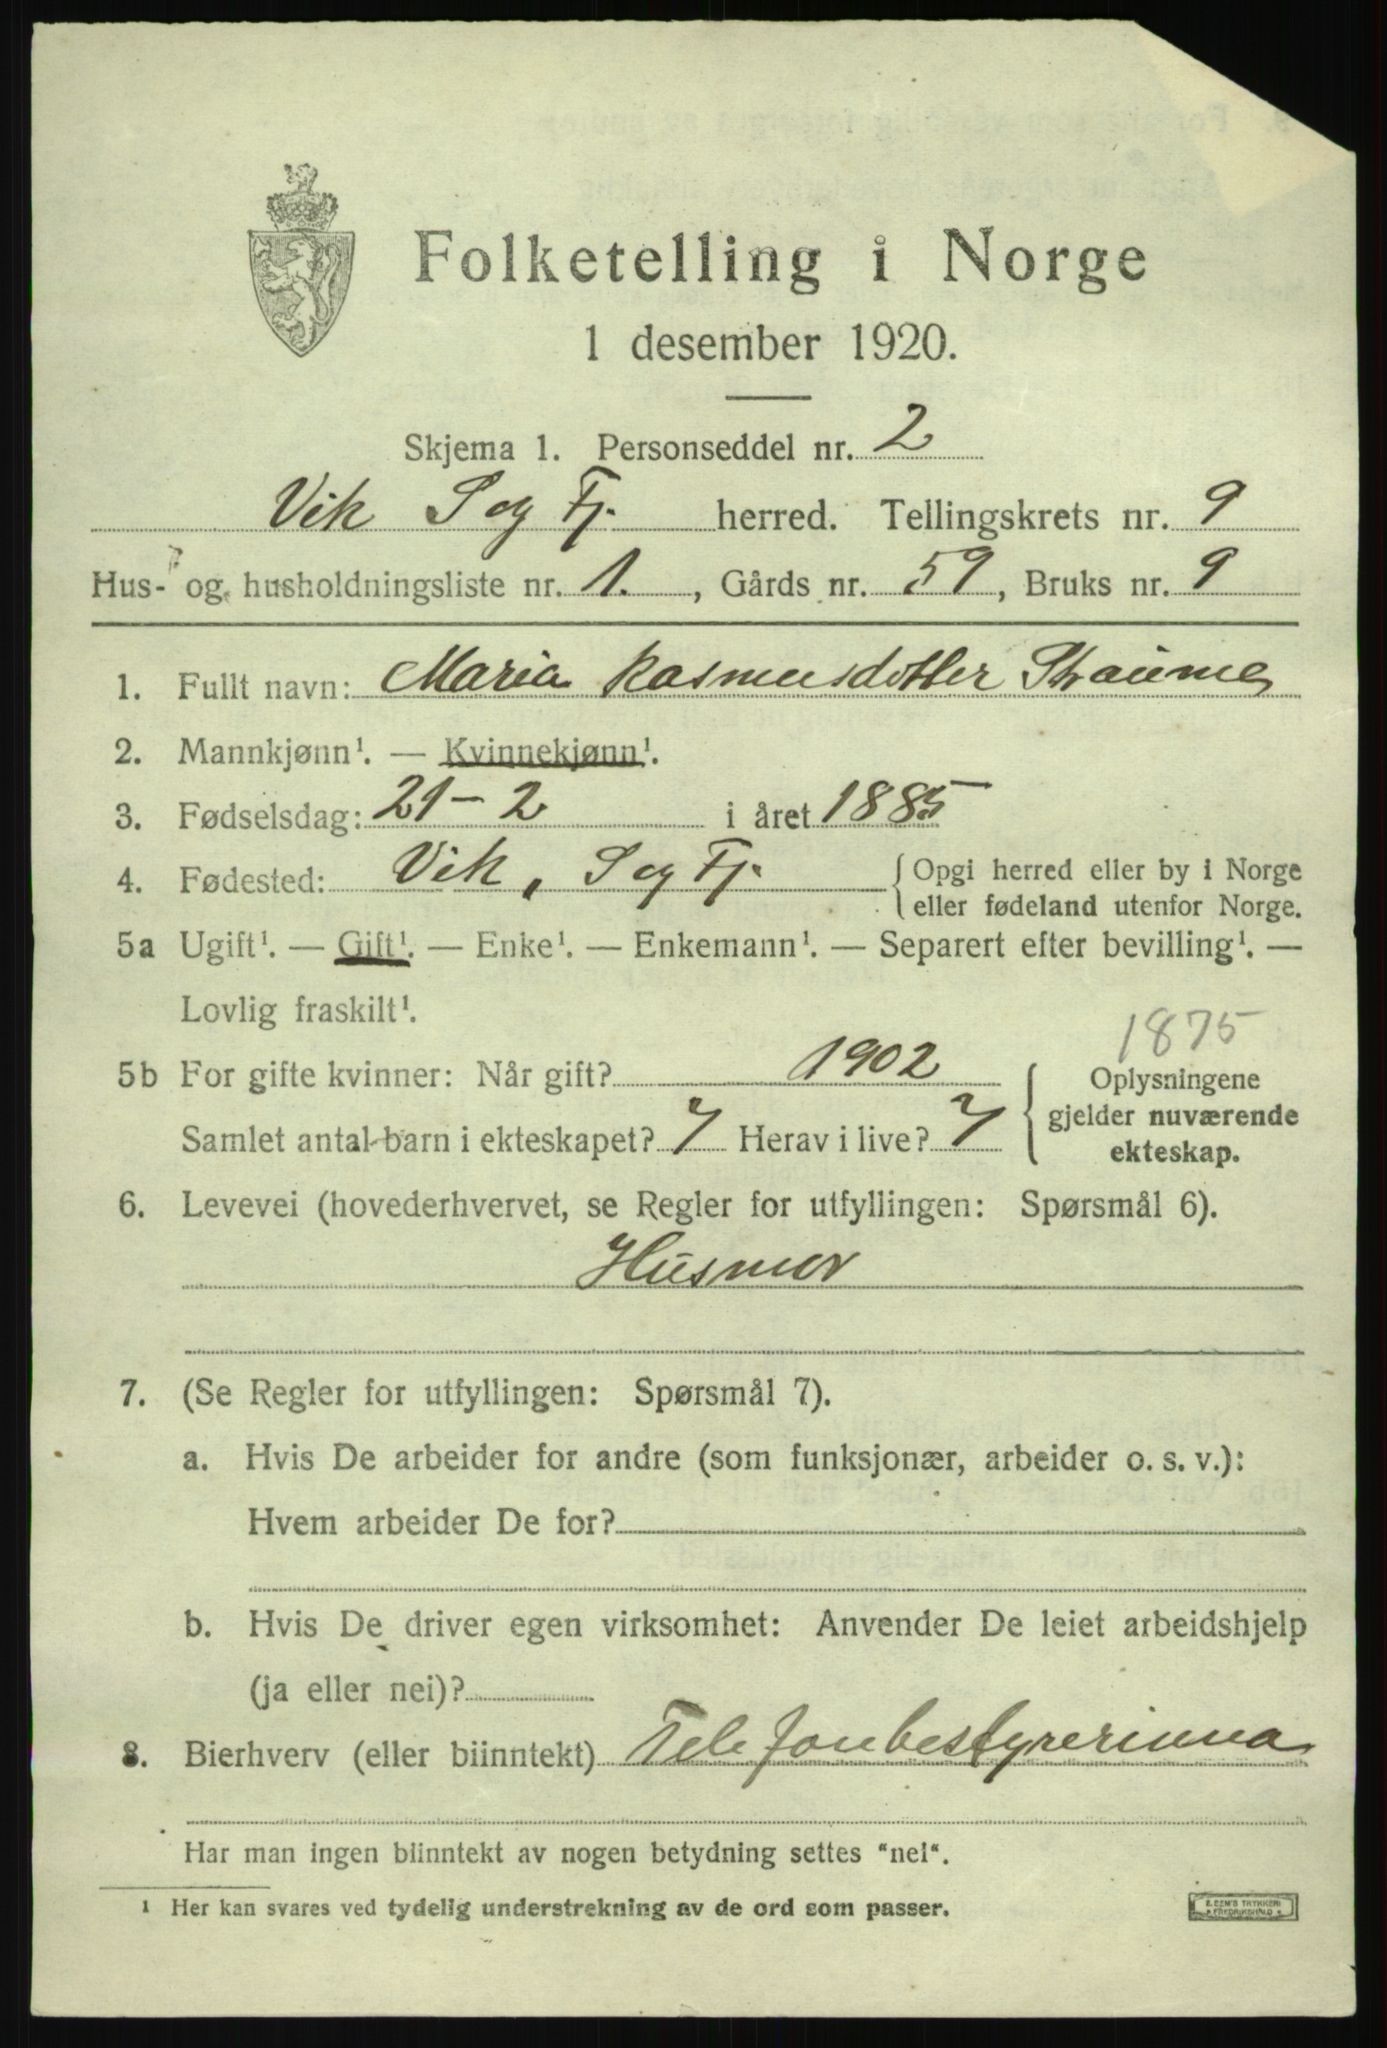 Folketelling i Norge
1 desember 1920.
Skjema 1. Personseddel nr. 2
Vik S og Fj. herred. Tellingskrets nr. 9
Hus- og husholdningsliste nr. 1. , Gårds nr. 59, Bruks nr. 9
1. Fullt navn: Maria Rasmusdotter Straume
2. Mannkjønn¹. — Kvinnekjønn¹.
3. Fødselsdag: 21-2 i året 1885
4. Fødested: Vik, S og Fj. { Opgi herred eller by i Norge
eller fødeland utenfor Norge.
5a Ugift¹. — Gift¹. — Enke¹. — Enkemann¹. — Separert efter bevilling¹. —
Lovlig fraskilt¹.
1875
5b For gifte kvinner: Når gift? 1902
Samlet antal barn i ekteskapet? 7 Herav i live? 7
{ Oplysningene
gjelder nuværende
ekteskap.
6. Levevei (hovederhvervet, se Regler for utfyllingen: Spørsmål 6).
Husmor
7. (Se Regler for utfyllingen: Spørsmål 7).
a. Hvis De arbeider for andre (som funksjonær, arbeider o. s. v.):
Hvem arbeider De for?
b. Hvis De driver egen virksomhet: Anvender De leiet arbeidshjelp
(ja eller nei)?
8. Bierhverv (eller biinntekt) Telefonbestyrerinna
Har man ingen biinntekt av nogen betydning settes "nei".
¹ Her kan svares ved tydelig understrekning av de ord som passer.